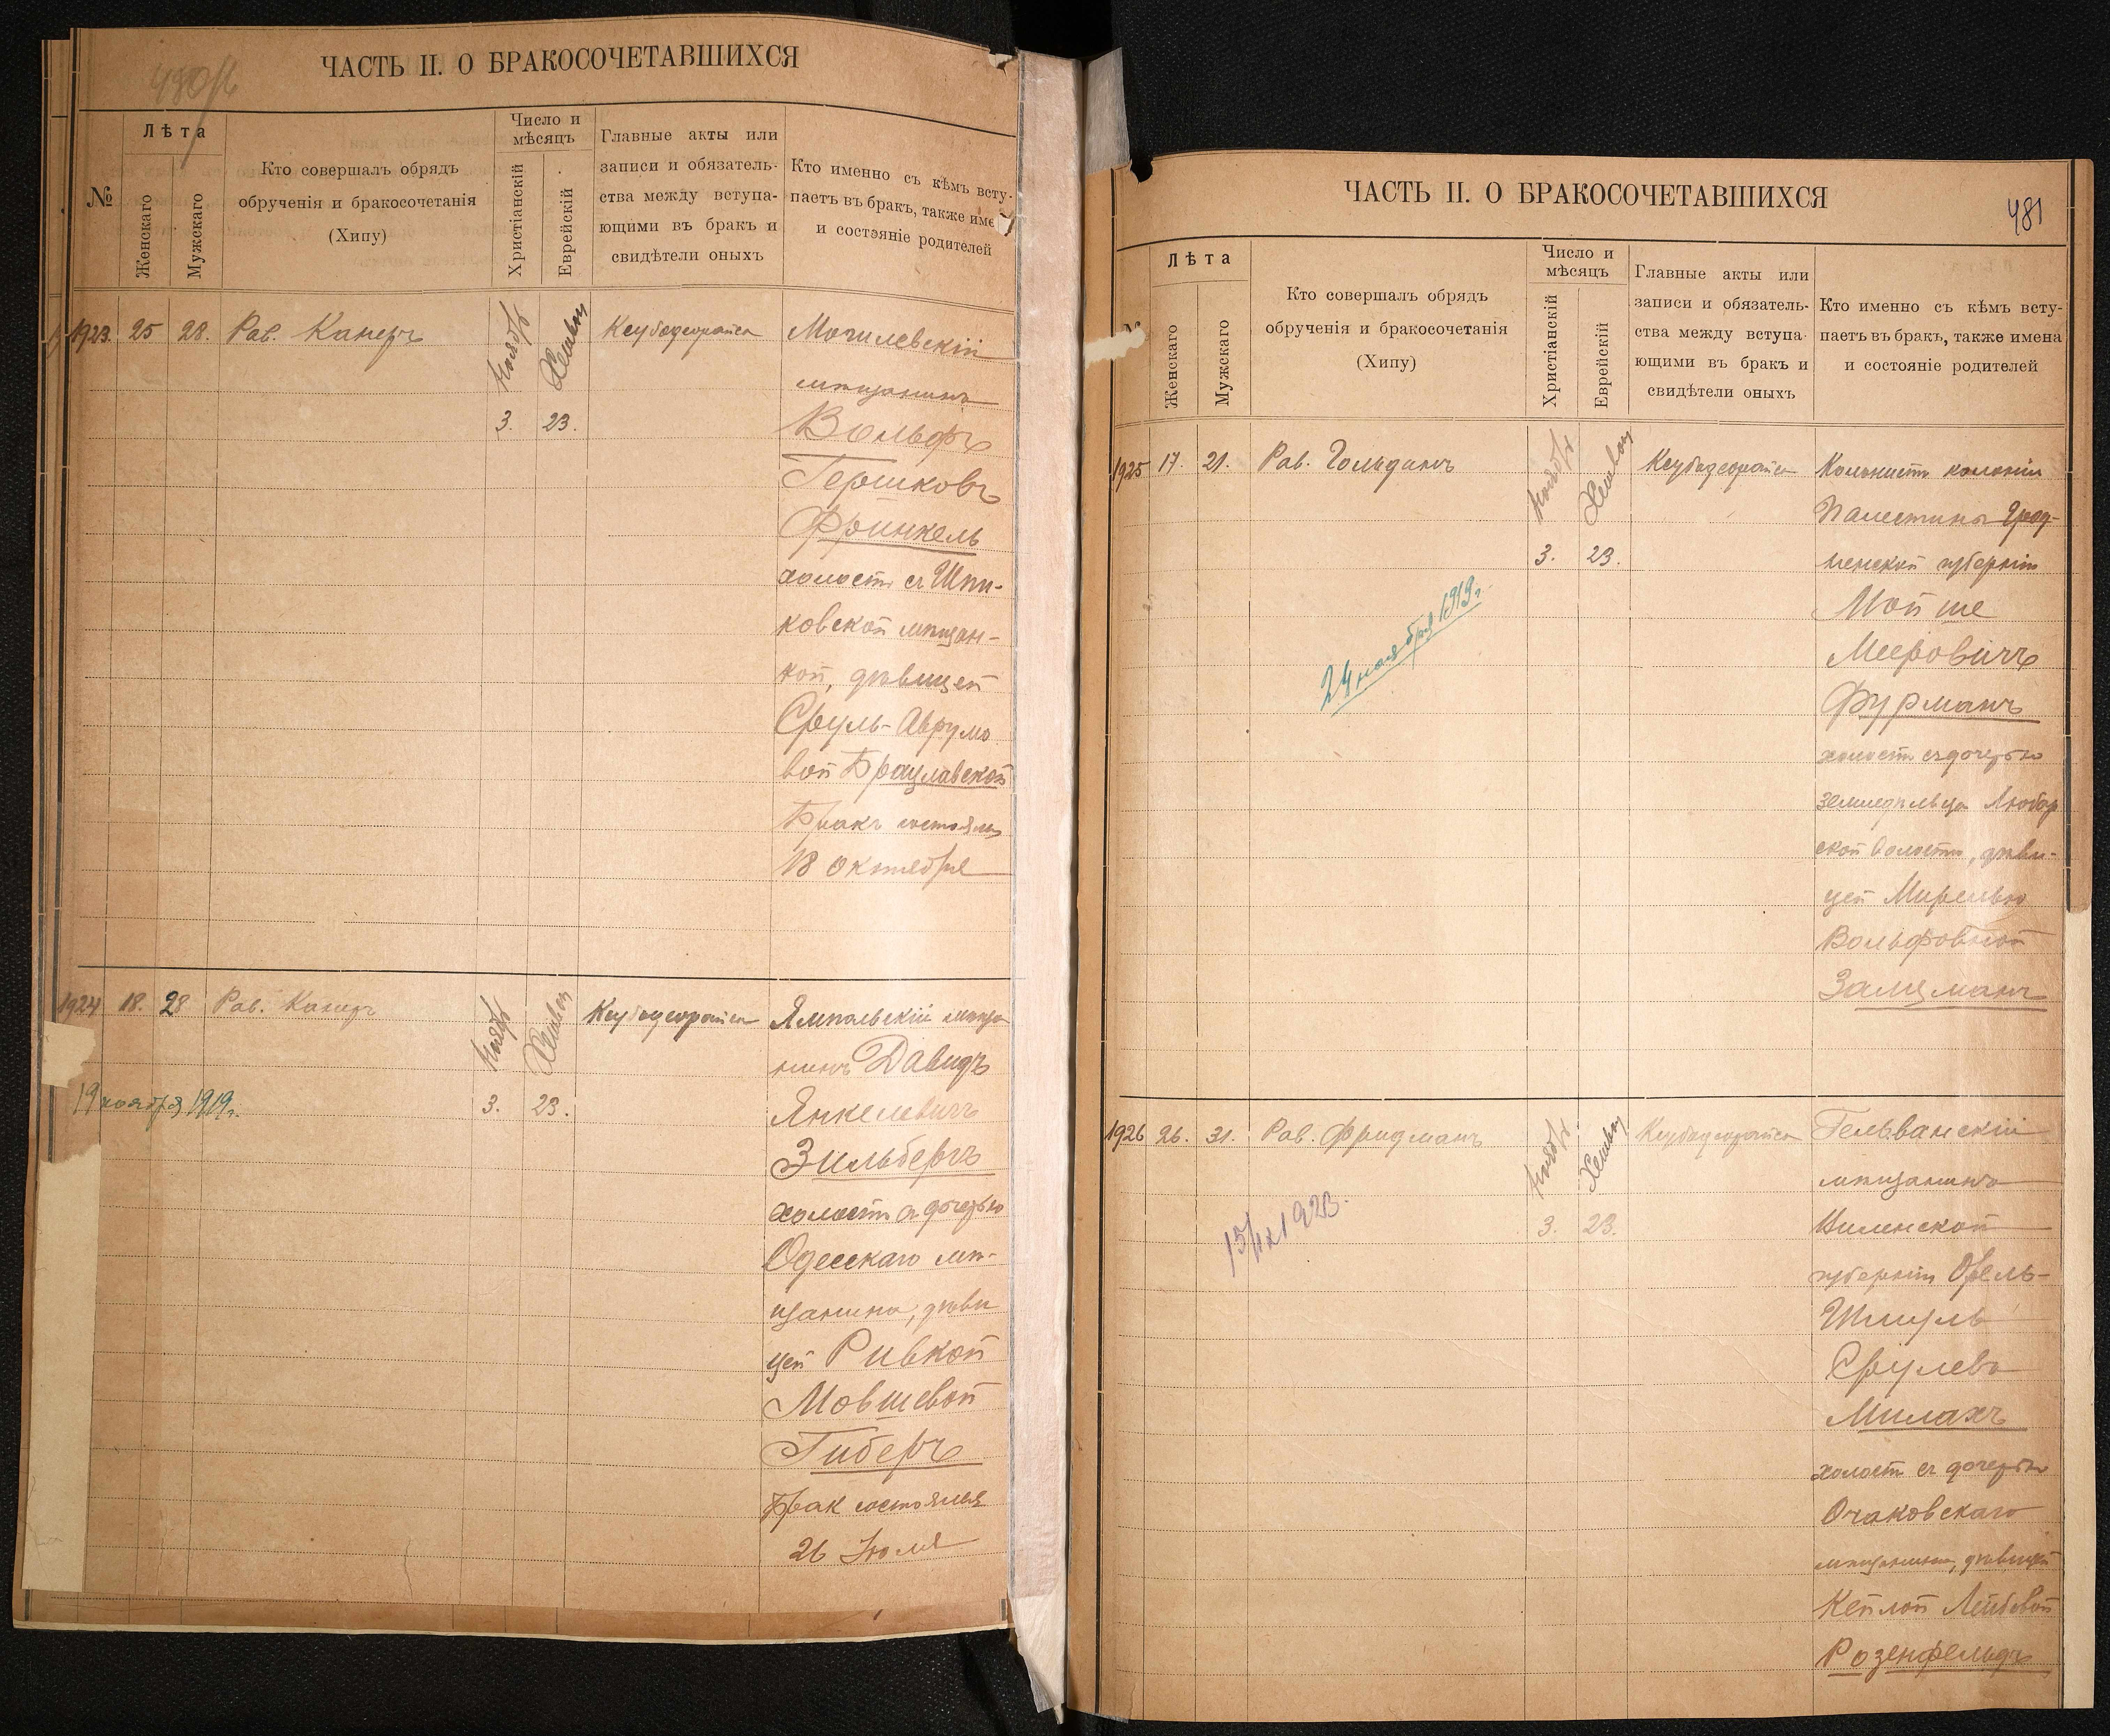 480/б
ЧАСТЬ II. О БРАКОСОЧЕТАВШИХСЯ
№
Лѣта
Женскаго
Мужскаго
Кто совершалъ обрядъ
обрученія и бракосочетанія
(Хипу)
Число и
мѣсяцъ
Христіанскій
Еврейскій
Главные акты или
записи и обязатель-
ства между вступа-
ющими въ бракъ и
свидѣтели оныхъ
Кто именно съ кѣмъ всту-
паетъ въ бракъ, также име
и состояніе родителей
1923. 25 28. Рав. Канеръ
Ноябрь
Хешван
3. 23.
Могилевскій
мѣщанинъ
Вольфъ
Гершковъ
Фринкель
холостъ съ Шпи-
ковской мѣщан-
кой, дѣвицей
Сруль-Аврумо
вой Брацлавской
Бракъ состоялся
18 Октября
1924 18. 28 Рав. Канеръ
Ноябрь
Хешван
3. 23.
19 ноября 1919г.
Ямпольскій мѣща
нинъ Давидъ
Янкелевичъ
Зильберъ
холостъ съ дочерью
Одесскаго мѣ-
щанина, дѣви
цей Ривкой
Мовшевой
Гиберъ
Брак состоялся
26 Іюля
ЧАСТЬ II. О БРАКОСОЧЕТАВШИХСЯ
481
Лѣта
Женскаго
Мужскаго
Кто совершалъ обрядъ
обрученія и бракосочетанія
(Хипу)
Число и
мѣсяцъ
Христіанскій
Еврейскій
Главные акты или
записи и обязатель-
ства между вступа-
ющими въ бракъ и
свидѣтели оныхъ
Кто именно съ кѣмъ всту-
паетъ въ бракъ, также имена
и состояніе родителей
1925 17. 21. Рав. Гольдинъ
Ноябрь
Хешван
3. 23.
24 ноября 1919г.
Колонистъ колоніи
Палестина Грод-
ненской губерніи
Мойше
Мееровичъ
Фурманъ
холостъ съ дочерью
земледѣльца Любар
ской волости, дѣви-
цей Мирелью
Вольфовной
Залцманъ
1926 26. 31. Рав. Фридманъ
Ноябрь
Хешван
3. 23.
15/IX 1923.
Гельванскій
мѣщанинъ
Виленской
губерніи
Шмуль
Срулевъ
Милахъ
холостъ съ дочерью
Очаковскаго
мѣщанина, дѣвицей
Кейлой Лейбовой
Розенфельдъ